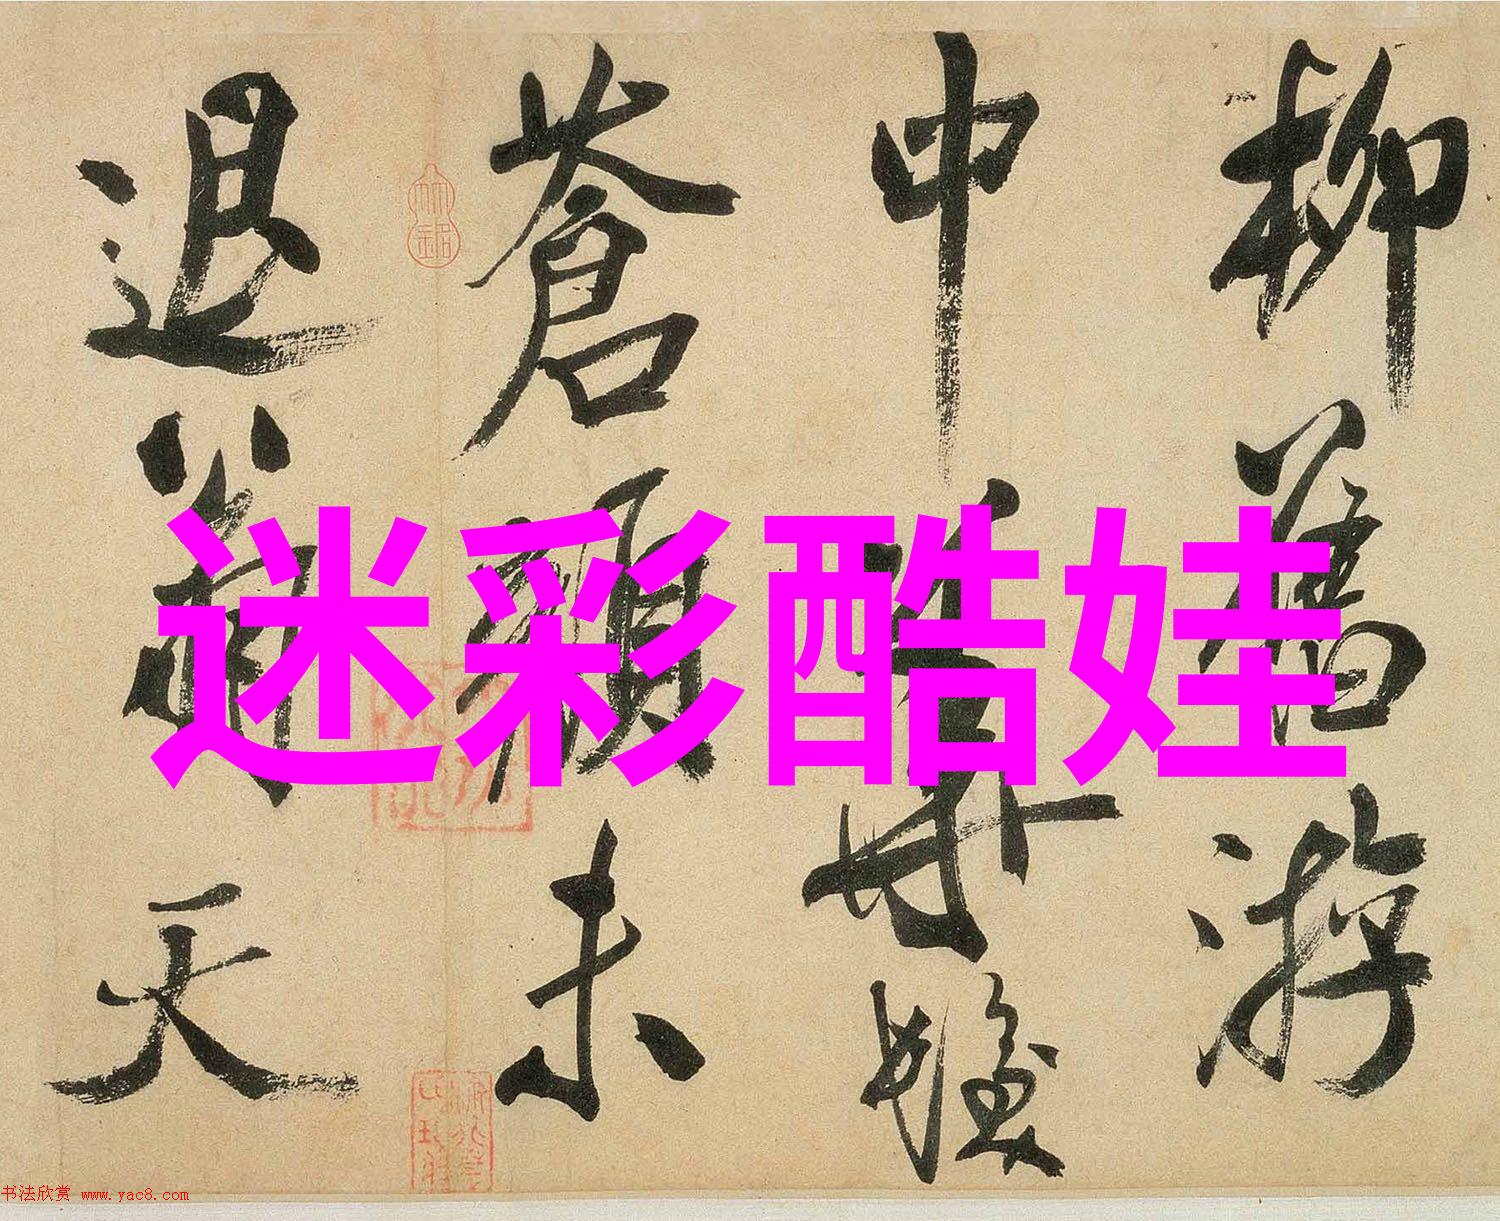 柳舊游
中華髮
蒼顏未
退翁天
迷彩酷娃
书法欣赏 www.yac8.com